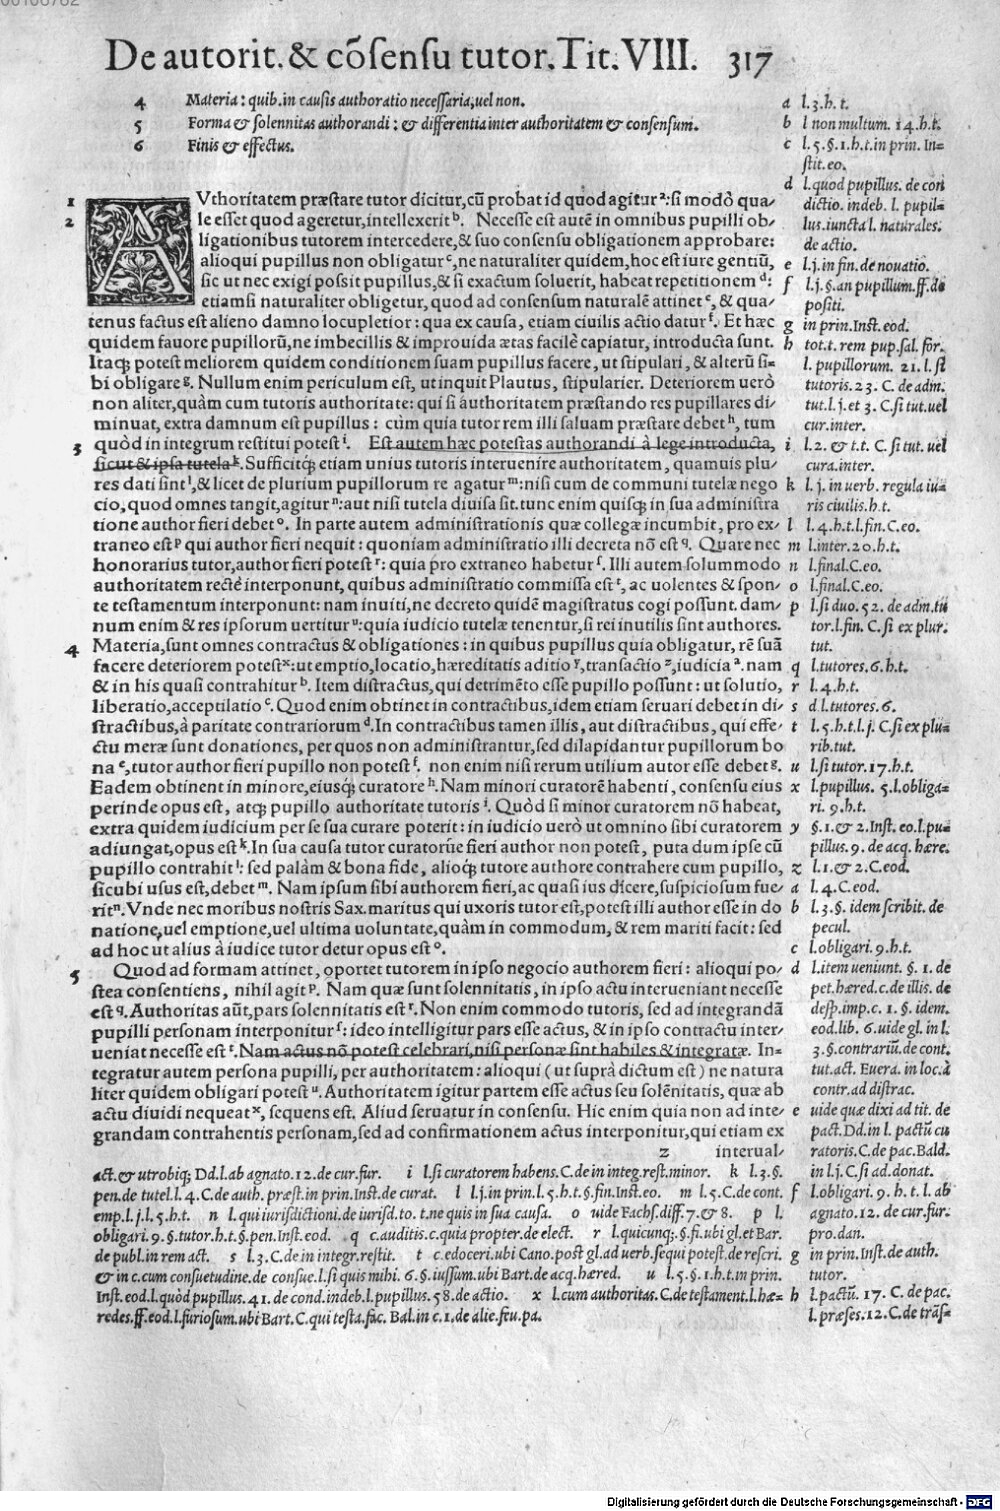 De autorit. & cõsensu tutor. Tit. VIII. 317
4 Materia: quib. in causis authoratio necessaria, uel non.
5 Forma & solennitas authorandi: & differentia inter authoritatem & consensum.
6 Finis & effectus.
1 AVthoritatem præstare tutor dicitur, cũ probat id quod agitur a: si modò qua-
2 le esset quod ageretur, intellexerit b. Necesse est autẽ in omnibus pupilli ob-
ligationibus tutorem intercedere, & suo consensu obligationem approbare:
alioqui pupillus non obligatur c, ne naturaliter quidem, hoc est iure gentiũ,
sic ut nec exigi possit pupillus, & si exactum soluerit, habeat repetitionem d:
etiamsi naturaliter obligetur, quod ad consensum naturalẽ attinet e, & qua-
tenus factus est alieno damno locupletior: qua ex causa, etiam ciuilis actio datur f. Et hæc
quidem fauore pupillorũ, ne imbecillis & improuida ætas facilè capiatur, introducta sunt.
Itaq; potest meliorem quidem conditionem suam pupillus facere, ut stipulari, & alterũ si-
bi obligare g. Nullum enim periculum est, ut inquit Plautus, stipularier. Deteriorem uerò
non aliter, quàm cum tutoris authoritate: qui si authoritatem præstando res pupillares di-
minuat, extra damnum est pupillus: cùm quia tutor rem illi saluam præstare debet h, tum
3 quòd in integrum restitui potest i. Est autem hæc potestas authorandi à lege introducta,
sicut & ipsa tutela k. Sufficitq; etiam unius tutoris interuenire authoritatem, quamuis plu-
res dati sint l, & licet de plurium pupillorum re agatur m: nisi cum de communi tutelæ nego
cio, quod omnes tangit, agitur n: aut nisi tutela diuisa sit. tunc enim quisq; in sua administra
tione author fieri debet o. In parte autem administrationis quæ collegæ incumbit, pro ex-
traneo est p qui author fieri nequit: quoniam administratio illi decreta nõ est q. Quare nec
honorarius tutor, author fieri potest r: quia pro extraneo habetur s. Illi autem solummodo
authoritatem rectè interponunt, quibus administratio commissa est t, ac uolentes & spon-
te testamentum interponunt: nam inuiti, ne decreto quidẽ magistratus cogi possunt. dam-
num enim & res ipsorum uertitur u: quia iudicio tutelæ tenentur, si rei inutilis sint authores.
4 Materia, sunt omnes contractus & obligationes: in quibus pupillus quia obligatur, rẽ suã
facere deteriorem potest x: ut emptio, locatio, hæreditatis aditio y, transactio z, iudicia a. nam
& in his quasi contrahitur b. Item distractus, qui detrimẽto esse pupillo possunt: ut solutio,
liberatio, acceptilatio c. Quod enim obtinet in contractibus, idem etiam seruari debet in di-
stractibus, à paritate contrariorum d. In contractibus tamen illis, aut distractibus, qui effe-
ctu meræ sunt donationes, per quos non administrantur, sed dilapidantur pupillorum bo
na e, tutor author fieri pupillo non potest f. non enim nisi rerum utilium autor esse debet g.
Eadem obtinent in minore, eiusq; curatore h. Nam minori curatorẽ habenti, consensu eius
perinde opus est, atq; pupillo authoritate tutoris i. Quòd si minor curatorem nõ habeat,
extra quidem iudicium per se sua curare poterit: in iudicio uerò ut omnino sibi curatorem
adiungat, opus est k. In sua causa tutor curatorûe fieri author non potest, puta dum ipse cũ
pupillo contrahit l: sed palàm & bona fide, alioq; tutore authore contrahere cum pupillo,
sicubi usus est, debet m. Nam ipsum sibi authorem fieri, ac quasi ius dicere, suspiciosum fue-
rit n. Vnde nec moribus nostris Sax. maritus qui uxoris tutor est, potest illi author esse in do
natione, uel emptione, uel ultima uoluntate, quàm in commodum, & rem mariti facit: sed
ad hoc ut alius à iudice tutor detur opus est o.
5 Quod ad formam attinet, oportet tutorem in ipso negocio authorem fieri: alioqui po-
stea consentiens, nihil agit p. Nam quæ sunt solennitatis, in ipso actu interueniant necesse
est q. Authoritas aũt, pars solennitatis est r. Non enim commodo tutoris, sed ad integrandã
pupilli personam interponitur s: ideo intelligitur pars esse actus, & in ipso contractu inter-
ueniat necesse est t. Nam actus nõ potest celebrari, nisi personæ sint habiles & integratæ. In-
tegratur autem persona pupilli, per authoritatem: alioqui (ut suprà dictum est) ne natura
liter quidem obligari potest u. Authoritatem igitur partem esse actus seu solẽnitatis, quæ ab
actu diuidi nequeat x, sequens est. Aliud seruatur in consensu. Hic enim quia non ad inte-
grandam contrahentis personam, sed ad confirmationem actus interponitur, qui etiam ex
z interual-
a l.3.h.t.
b l non multum. 14.h.t.
c l.5.§.1.h.t.in prin. In-
stit.eo.
d l.quod pupillus. de con
dictio. indeb. l. pupil-
lus.iuncta l. naturales.
de actio.
e l.j.in fin.de nouatio.
f l.j.§.an pupillum.ff.de
positi.
g in prin.Inst.eod.
h tot.t. rem pup.sal. for.
l. pupillorum. 21. l. si
tutoris.23. C. de adm.
tut.l.j.et 3. C.si tut.uel
cur.inter.
i l.2. & t.t. C.si tut. uel
cura.inter.
k l. j. in uerb. regula iu-
ris ciuilis.h.t.
l l.4.h.t.l.fin.C.eo.
m l.inter.20.h.t.
n l.final.C.eo.
o l.final.C.eo.
p l.si duo.52. de adm.tu
tor.l.fin. C.si ex plur.
tut.
q l.tutores.6.h.t.
r l.4.h.t.
s d l.tutores.6.
t l.5.h.t.l.j. C.si ex plu-
rib.tut.
u l.si tutor.17.h.t.
x l.pupillus. 5.l.obliga-
ri. 9.h.t.
y §.1.& 2.Inst. eo.l.pu-
pillus.9. de acq. hære.
z l.1.& 2.C.eod.
a l.4.C.eod.
b l.3.§. idem scribit. de
pecul.
c l.obligari.9.h.t.
d l.item ueniunt. §. 1. de
pet.hæred.c.de illis. de
desp.imp.c. 1. §. idem.
eod.lib. 6.uide gl.in l.
3.§.contrariũ.de cont.
tut.act. Euera. in loc.à
contr.ad distrac.
e uide quæ dixi ad tit. de
pact.Dd.in l. pactũ cu
ratoris.C.de pac.Bald.
in l.j. C.si ad.donat.
f l.obligari. 9. h. t. l. ab
agnato.12. de cur.fur.
pro.dan.
g in prin.Inst.de auth.
tutor.
h l.pactũ. 17. C. de pac.
l.præses.12.C.de trãs-
act.& utrobiq; Dd.l.ab agnato.12.de cur.fur. i l.si curatorem habens.C.de in integ.rest.minor. k l.3.§.
pen.de tutel.l.4.C.de auth. præst.in prin.Inst.de curat. l l.j.in prin.l.5.h.t.§.fin.Inst.eo. m l.5.C.de cont.
emp.l.j.l.5.h.t. n l.qui iurisdictioni.de iurisd.to.t.ne quis in sua causa. o uide Fachs.diff.7.& 8. p l.
obligari.9.§.tutor.h.t.§.pen.Inst.eod. q c.auditis.c.quia propter.de elect. r l.quicunq;.§.fi.ubi gl.et Bar.
de publ.in rem act. s l.3.C.de in integr.restit. t c.edoceri.ubi Cano.post gl.ad uerb.sequi potest.de rescri.
& in c.cum consuetudine.de consue.l.si quis mihi. 6.§.iussum.ubi Bart.de acq.hæred. u l.5.§.1.h.t.in prin.
Inst.eod.l.quòd pupillus.41.de cond.indeb.l.pupillus.58.de actio. x l.cum authoritas.C.de testament.l.hæ-
redes.ff.eod.l.furiosum.ubi Bart.C.qui testa.fac. Bal.in c.1.de alie.feu.pa.
Digitalisierung gefördert durch die Deutsche Forschungsgemeinschaft - DFG